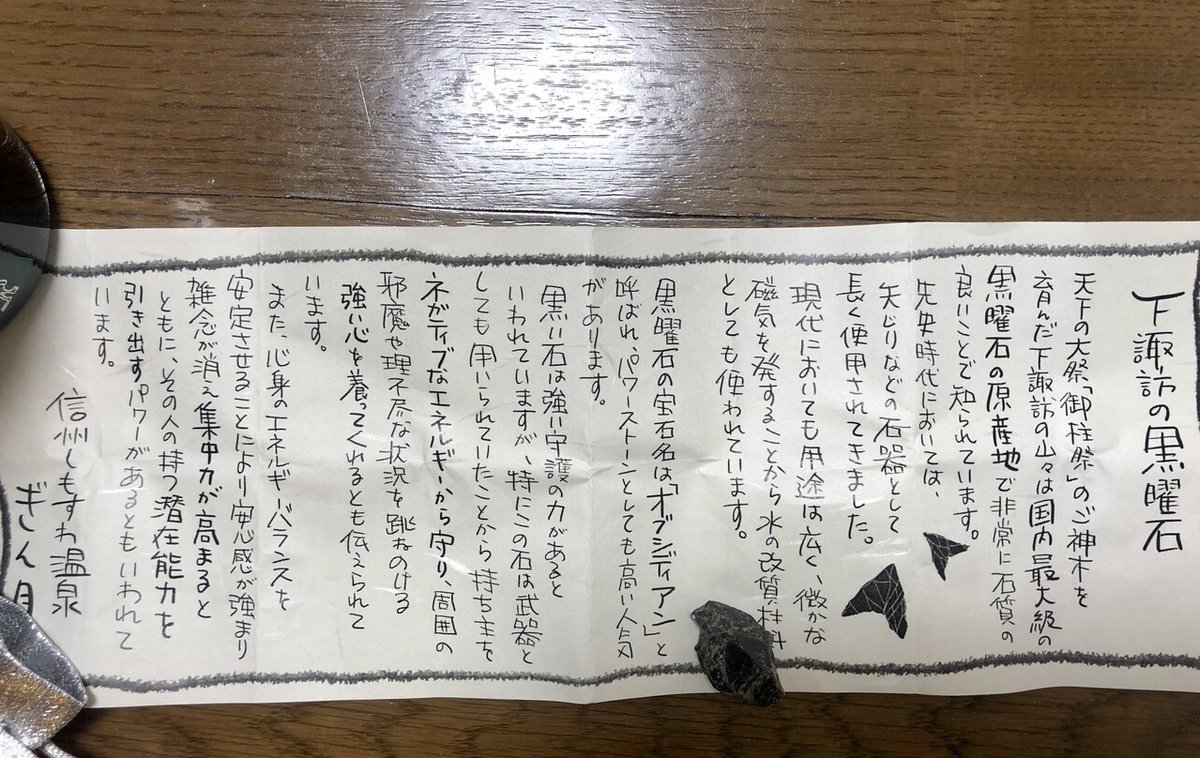 下諏訪の黒曜石
天下の大祭「御柱祭」のご神木を
育んだ下諏訪の山々は国内最大級の
黒曜石の原産地で非常に石質の
良いことで知られています。
先史時代においては、
矢じりなどの石器として
長く使用されてきました。
現代においても用途は広く、微かな
磁気を発することから水の改質材料
としても使われています。
黒曜石の宝石名は「オブシディアン」と
呼ばれ、パワーストーンとしても高い人気
があります。
黒い石は強い守護の力があると
いわれていますが、特にこの石は武器と
しても用いられていたことから持ち主を
ネガティブなエネルギーから守り、周囲の
邪魔や理不尽な状況を跳ねのける
強い心を養ってくれるとも伝えられて
います。
また、心身のエネルギーバランスを
安定させることにより安心感が強まり
雑念が消え集中力が高まると
ともに、その人の持つ潜在能力を
引き出すパワーがあるともいわれて
います。
信州しもすわ温泉
ぎん月